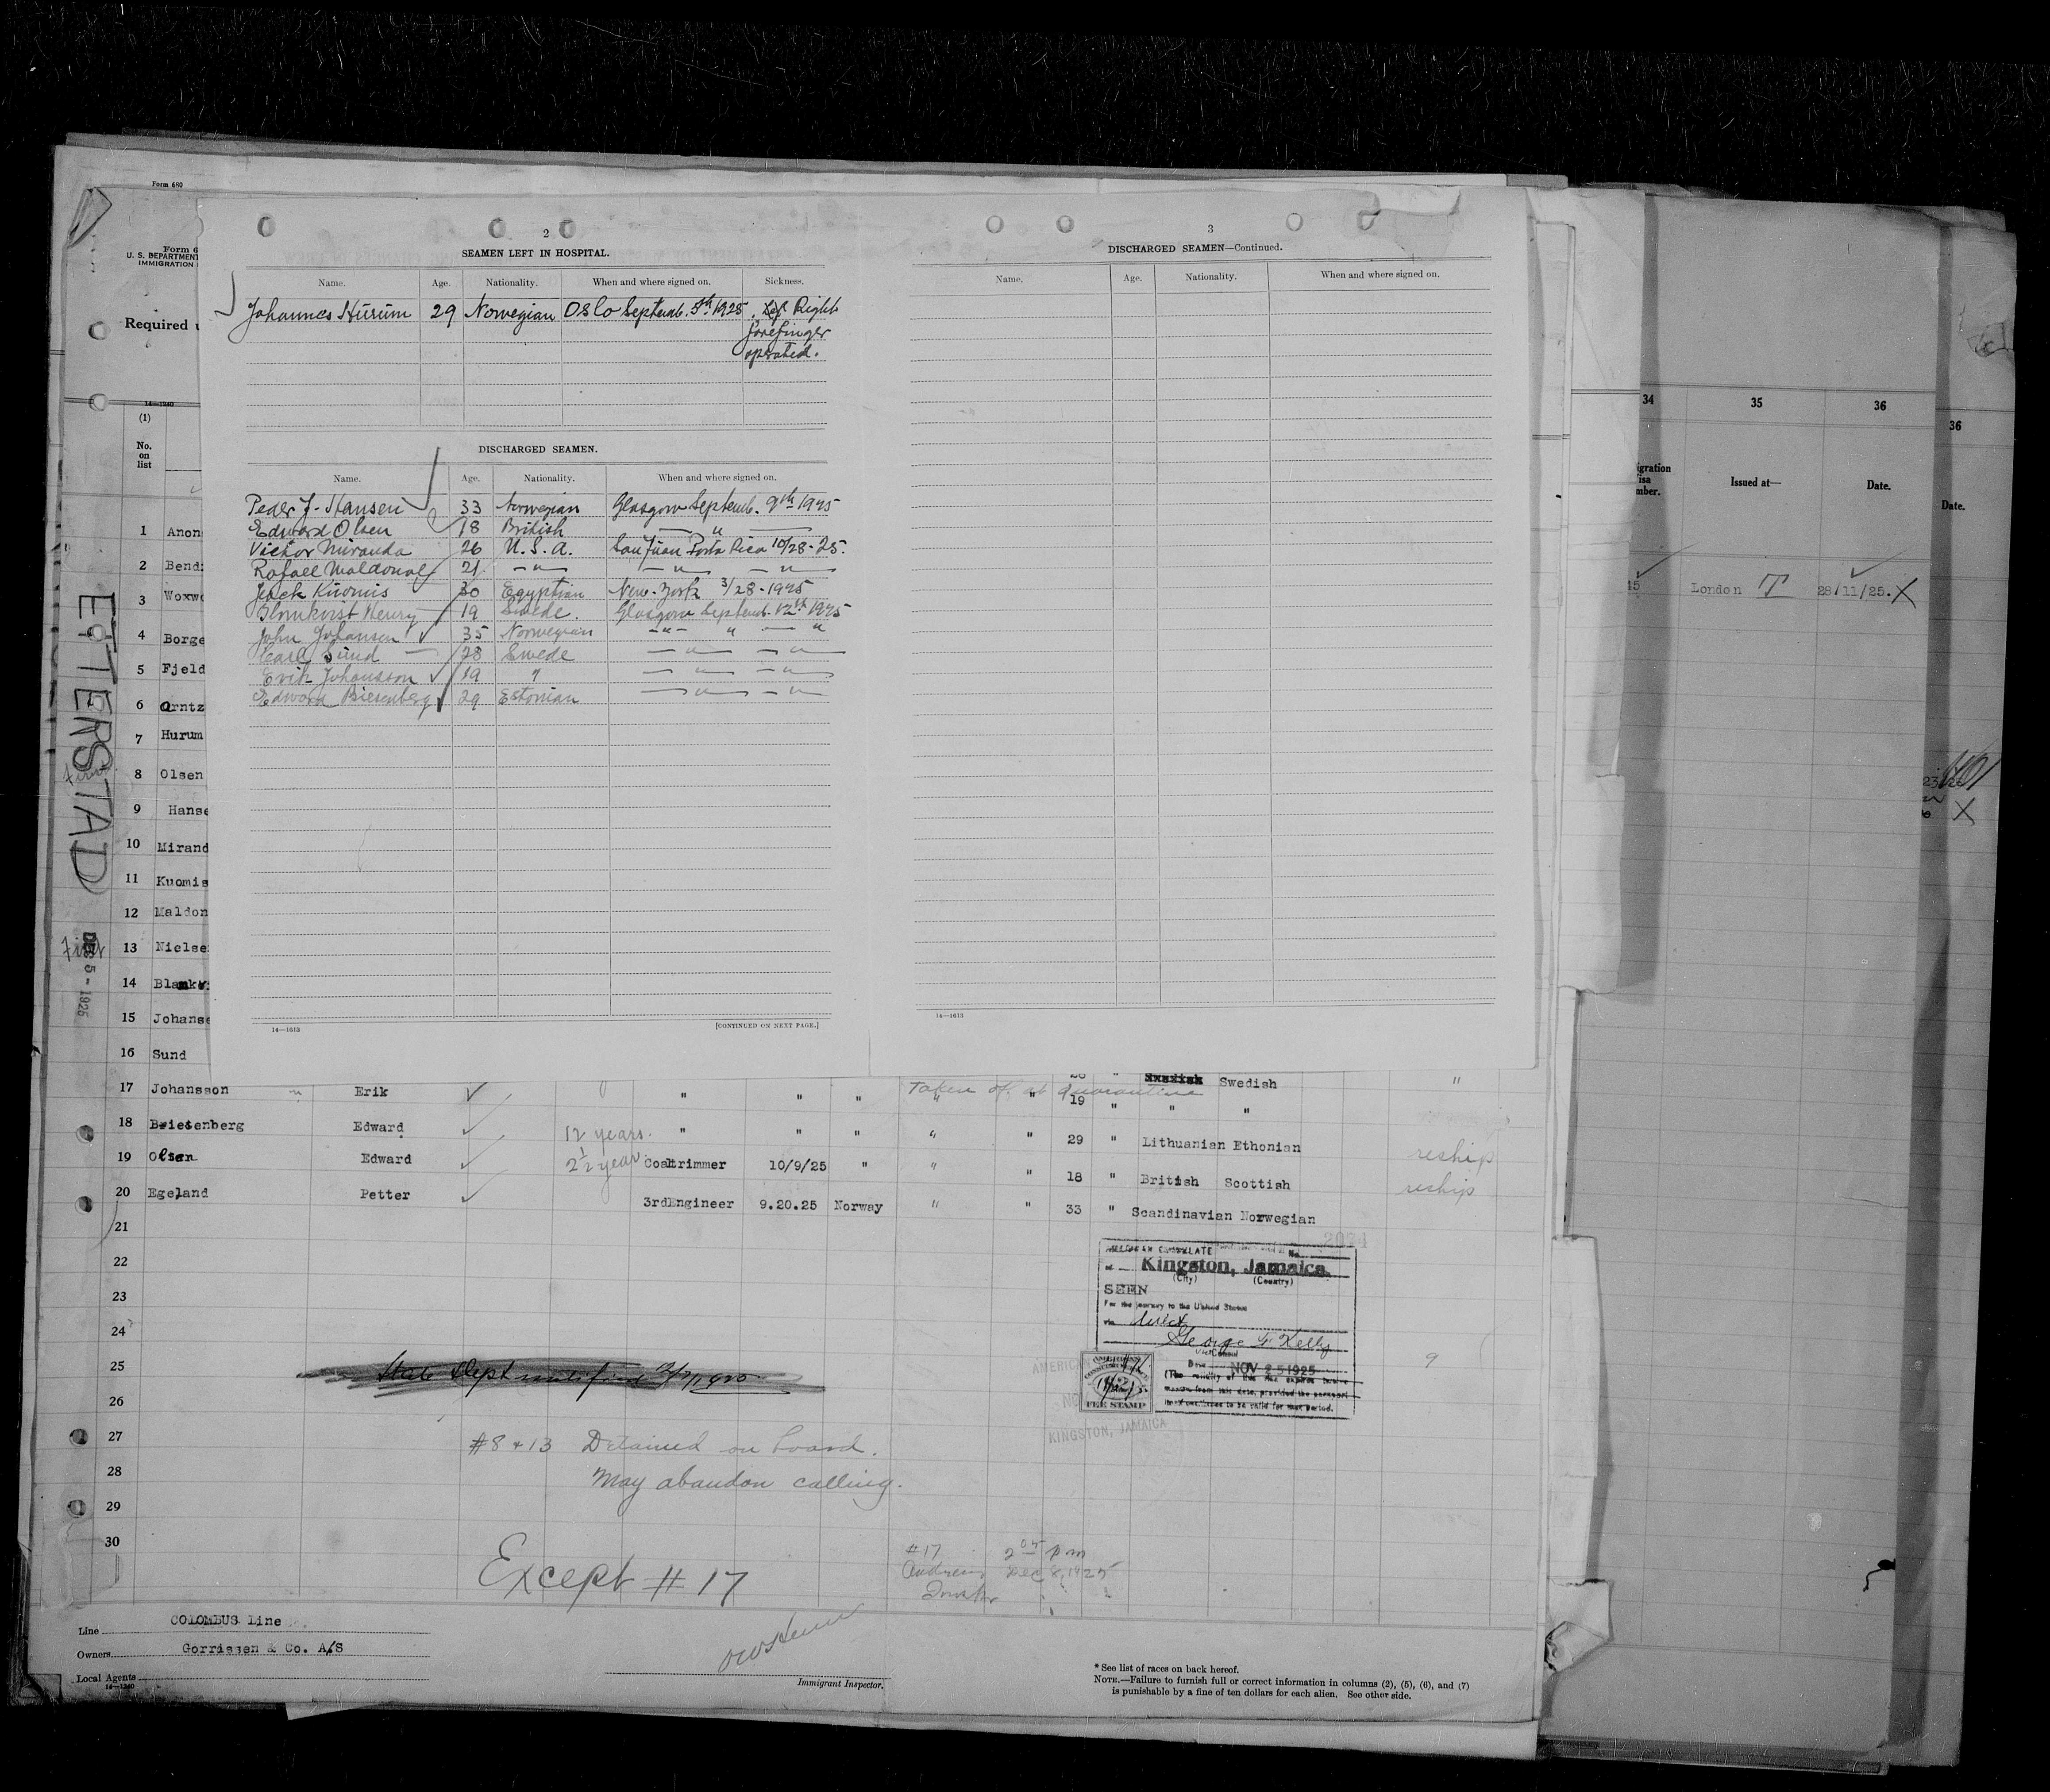 Form 680
Form 6
U. S. DEPARTMENT
IMMIGRATION
Required
14—1240
(1)
No. on list
2
SEAMEN LEFT IN HOSPITAL.
Name. Age. Nationality. When and where signed on. Sickness.
Johannes Hurum 29 Norwegian Oslo Septemb. 5th 1925 Right
forefinger
operated.
DISCHARGED SEAMEN.
Name. Age. Nationality. When and where signed on.
Peder J. Hansen 33 Norwegian Glasgow Septemb. 9th 1925
Edward Olsen 18 British — " —
Victor Miranda 26 U. S. A. San Juan Porto Rico 10/28-25.
Rafael Maldonad 21 — " — — " — — " —
Jack Kuomis 30 Egyptian New-York 3/28-1925
Blomkvist Henry 19 Swede. Glasgow Septemb. 12th 1925
John Johansen 35 Norwegian — " — " — "
Carl Sund 28 Swede — " — — " —
Erik Johansson 19 " — " — — " —
Edward Briesenberg 29 Estonian — " — — " —
14—1613
[CONTINUED ON NEXT PAGE.]
3
DISCHARGED SEAMEN—Continued.
Name. Age. Nationality. When and where signed on.
14—1613
34 35 36
igration
isa
mber.
Issued at—
Date.
45 London T 28/11/25. X
36
Date.
X
ETTERSTAD
DEC 5 - 1925
1 Anon
2 Bend
3 Woxwo
4 Borge
5 Fjeld
6 Orntz
7 Hurum
First 8 Olsen
9 Hanse
10 Mirand
11 Kuomis
12 Maldon
First 13 Nielse
14 Blamkv
15 Johanse
16 Sund
Swedish
"
Taken off at Quarantine
17 Johansson Erik " " " " " 19 " " "
18 Brietenberg Edward 12 years. " " " " " 29 " Lithuanian Ethonian
reship
19 Olsen Edward 2½ year Coaltrimmer 10/9/25 " " " 18 " British Scottish
reship
20 Egeland Petter 3rdEngineer 9.20.25 Norway " " 33 " Scandinavian Norwegian
21
22
23
24
25
26
27
28
29
30
2024
AMERICAN CONSULATE No.
at Kingston, Jamaica.
(City) (Country)
SEEN
For the journey to the United States
via direct
George F. Kelly
Vice Consul
Date NOV 25 1925
(The validity of this visa expires twelve
months from this date, provided the passport
continues to be valid for that period.
FEE STAMP
AMERICAN
KINGSTON, JAMAICA
9
State Dept notified
#8 & 13 Detained on board.
May abandon calling.
Except # 17
#17 2 05 pm
Andrew Dec 8, 1925
Line COLOMBUS Line
Owners Gorrissen & Co. A/S
Local Agents
14—1240
Immigrant Inspector.
* See list of races on back hereof.
NOTE.—Failure to furnish full or correct information in columns (2), (5), (6), and (7)
is punishable by a fine of ten dollars for each alien. See other side.